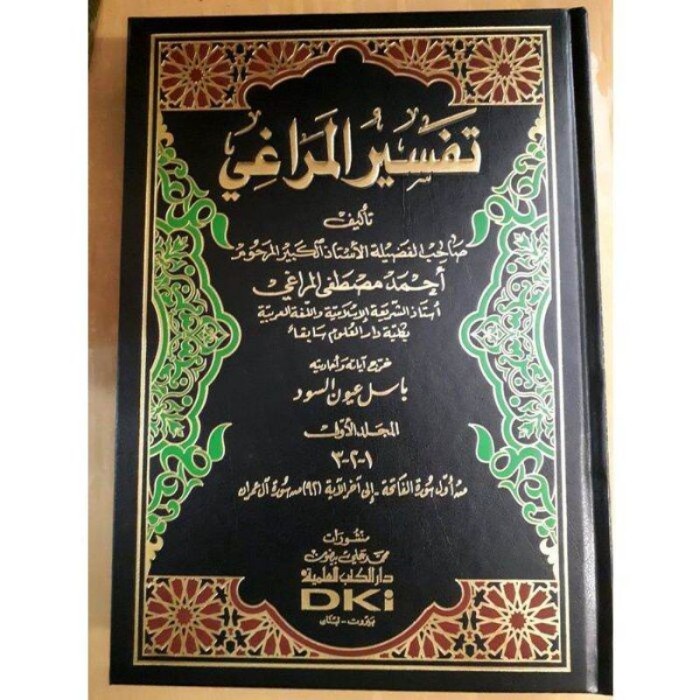 تفسير المراغي
تأليف
صاحب الفضيلة الأستاذ الكبير المرحوم
أحمد مصطفى المراغي
أستاذ الشريعة الإسلامية واللغة العربية
بكلية دار العلوم سابقاً
خرج آياته وأحاديثه
باسل عيون السود
المجلد الأول
١-٢-٣
من أول سورة الفاتحة - إلى آخر الآية (٩٢) من سورة آل عمران
منشورات
محمد علي بيضون
دار الكتب العلمية
DKi
بيروت - لبنان